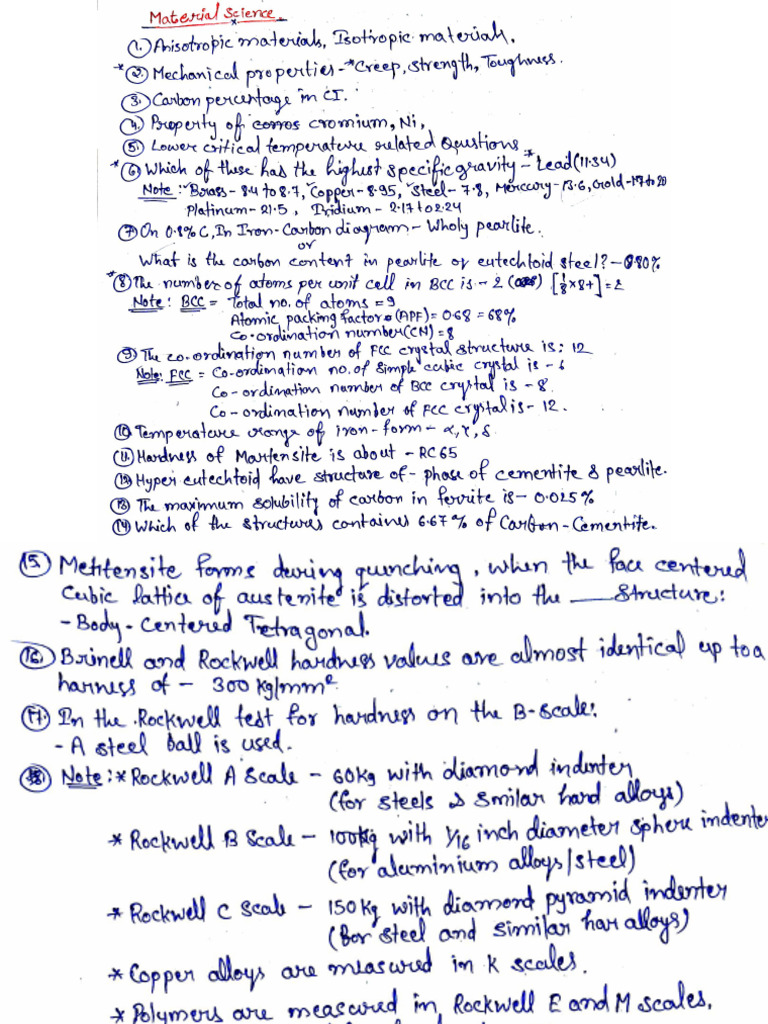 Material Science.
① Anisotropic materials, Isotropic materials.
*② Mechanical properties - *Creep, Strength, Toughness.
③ Carbon percentage in CI.
④ Property of corros cromium, Ni,
⑤ Lower critical temperature related Questions
*⑥ Which of these has the highest specific gravity - *Lead (11.34)
Note :- Brass - 8.4 to 8.7, Copper - 8.95, Steel - 7.8, Mercury - 13.6, Gold - 19 to 20
Platinum - 21.5, Iridium - 2.17 to 2.24
⑦ On 0.8% C, In Iron-Carbon diagram - Wholy pearlite.
or
What is the carbon content in pearlite or eutechtoid steel? - 0.80%
*⑧ The number of atoms per unit cell in BCC is - 2 [1/8 × 8 + 1] = 2
Note : BCC = Total no. of atoms = 9
Atomic packing factor (APF) = 0.68 = 68%
Co-ordination number (CN) = 8
⑨ The co-ordination number of FCC crystal structure is : 12
Note : FCC = Co-ordination no. of Simple cubic crystal is - 6
Co-ordination number of BCC crystal is - 8
Co-ordination number of FCC crystal is - 12.
⑩ Temperature range of iron-form - α, γ, δ
⑪ Hardness of Martensite is about - RC 65
⑫ Hyper eutechtoid have structure of - phase of cementite & pearlite.
⑬ The maximum solubility of carbon in ferrite is - 0.025%
⑭ Which of the structures contains 6.67% of Carbon - Cementite.
⑮ Mettensite forms during quenching, when the face centered
Cubic lattice of austenite is distorted into the ___ structure:
- Body-Centered Tetragonal.
⑯ Brinell and Rockwell hardness values are almost identical up to a
harness of - 300 kg/mm²
⑰ In the Rockwell test for hardness on the B-scale:
- A steel ball is used.
⑱ Note : * Rockwell A Scale - 60kg with diamond indenter
(for steels & smilar hard alloys)
* Rockwell B Scale - 100kg with 1/16 inch diameter sphere indenter
(for aluminium alloys/steel)
* Rockwell C Scale - 150 Kg with diamond pyramid indenter
(For steel and similar har alloys)
* Copper alloys are measured in K scales.
* Polymers are measured in Rockwell E and M scales.